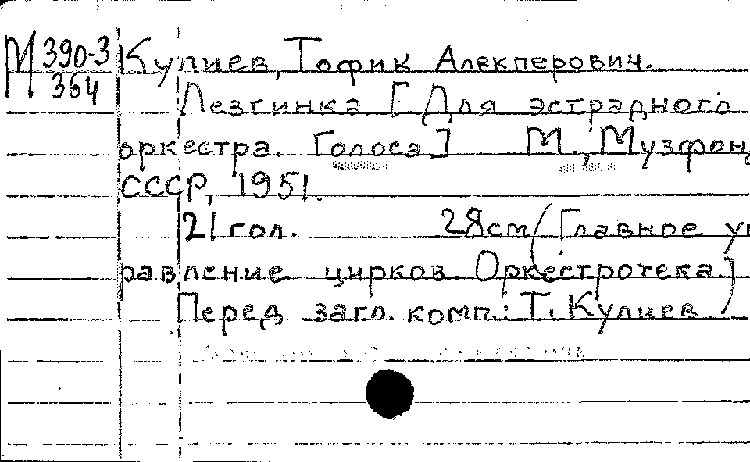 М 390-3
364
Кулиев, Тофик Алекперович.
Лезгинка [Для эстрадного
оркестра. Голоса] М., Музфонд
СССР, 1951.
21 гол. 28см (Главное уп
равление цирков. Оркестротека.)
Перед загл. комп.: Т. Кулиев